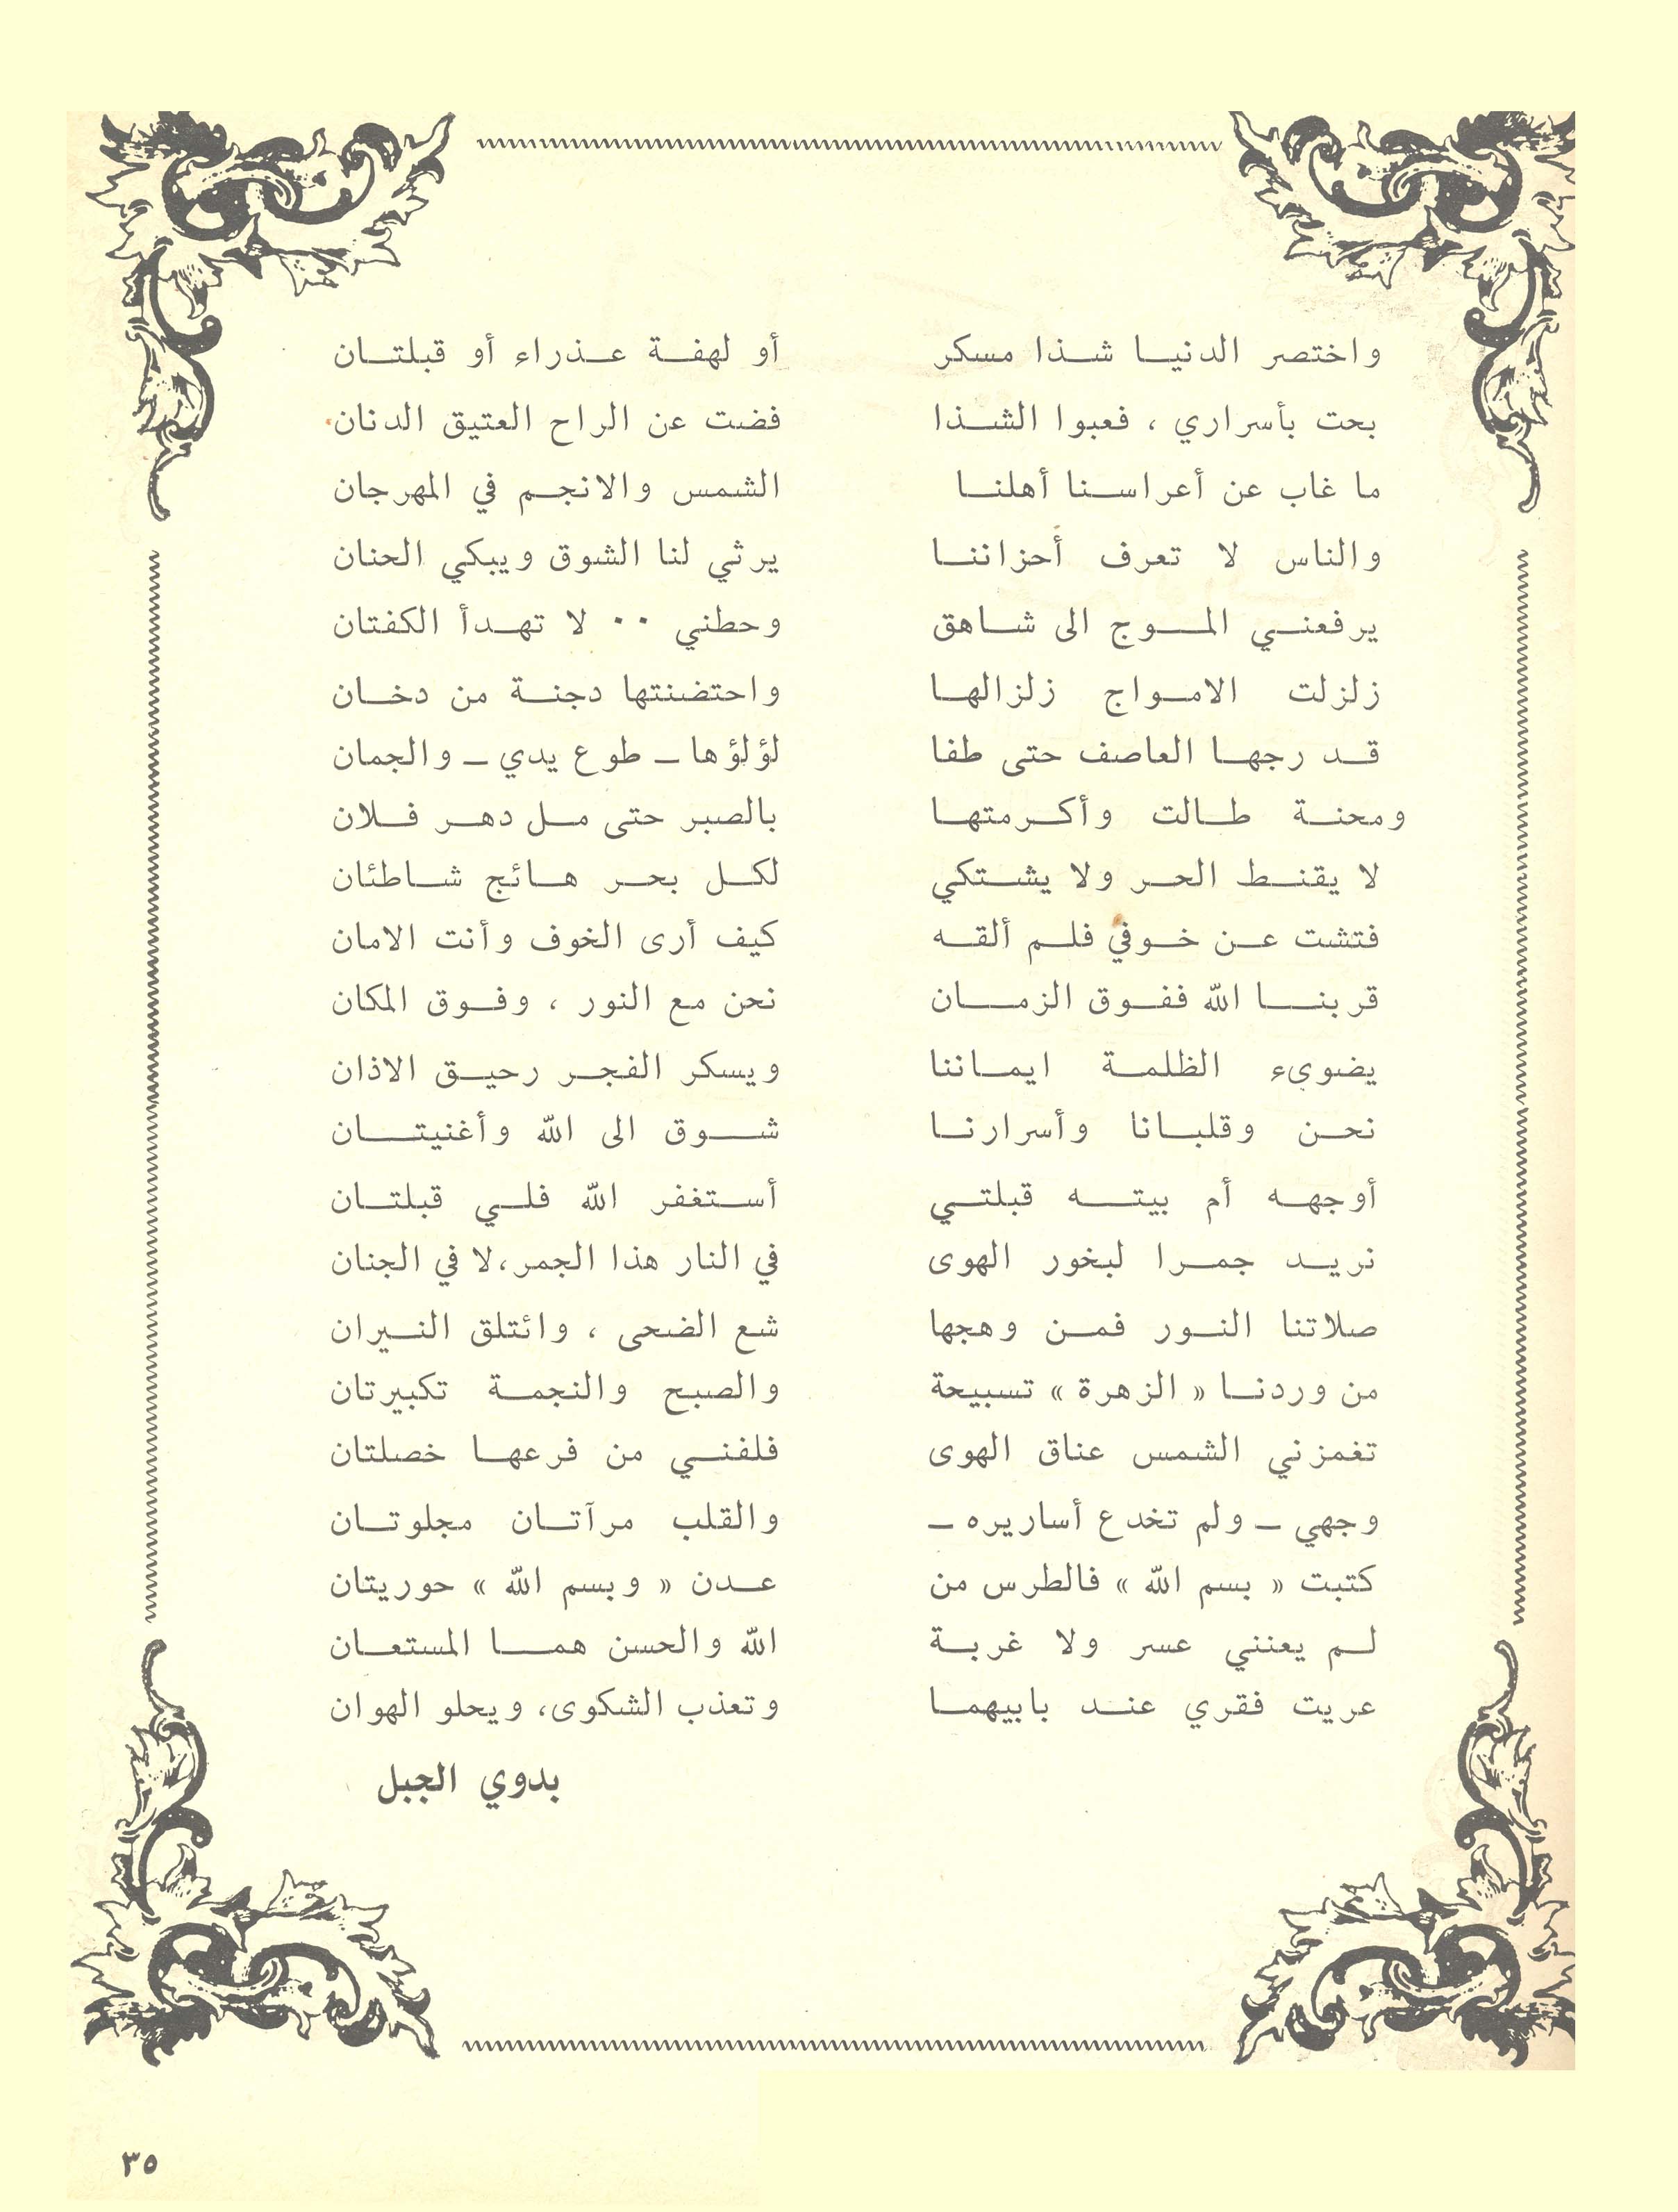 واختصر الدنيا شذا مسكر أو لهفة عذراء أو قبلتان
بحت بأسراري ، فعبوا الشذا فضت عن الراح العتيق الدنان
ما غاب عن أعراسنا أهلنا الشمس والانجم في المهرجان
والناس لا تعرف أحزاننا يرثي لنا الشوق ويبكي الحنان
يرفعني الموج الى شاهق وحطني ٠٠ لا تهدأ الكفتان
زلزلت الامواج زلزالها واحتضنتها دجنة من دخان
قد رجها العاصف حتى طفا لؤلؤها ـ طوع يدي ـ والجمان
ومحنة طالت وأكرمتها بالصبر حتى مل دهر فلان
لا يقنط الحر ولا يشتكي لكل بحر هائج شاطئان
فتشت عن خوفي فلم ألقه كيف أرى الخوف وأنت الامان
قربنا الله ففوق الزمان نحن مع النور ، وفوق المكان
يضوىء الظلمة ايماننا ويسكر الفجر رحيق الاذان
نحن وقلبانا وأسرارنا شوق الى الله وأغنيتان
أوجهه أم بيته قبلتي أستغفر الله فلي قبلتان
نريد جمرا لبخور الهوى في النار هذا الجمر، لا في الجنان
صلاتنا النور فمن وهجها شع الضحى ، وائتلق النيران
من وردنا « الزهرة » تسبيحة والصبح والنجمة تكبيرتان
تغمزني الشمس عناق الهوى فلفني من فرعها خصلتان
وجهي ـ ولم تخدع أساريره ـ والقلب مرآتان مجلوتان
كتبت « بسم الله » فالطرس من عدن « وبسم الله » حوريتان
لم يعنني عسر ولا غربة الله والحسن هما المستعان
عريت فقري عند بابيهما وتعذب الشكوى، ويحلو الهوان
بدوي الجبل
٣٥